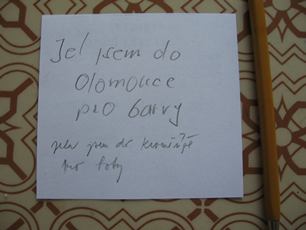 Jel jsem do
Olomouce
pro barvy
jela jsem do Kroměříže
pro boty